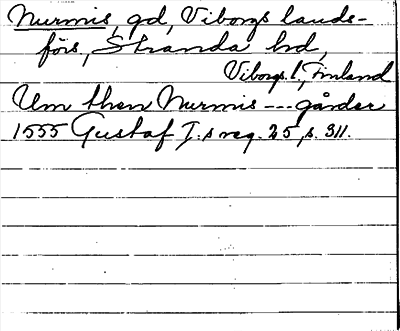 Nurmis, gd, Viborgs lands-
förs, Stranda hd,
Viborgs l., Finland
Um then Nurmis --- gårder
1555 Gustaf I.s reg. 25, s. 311.